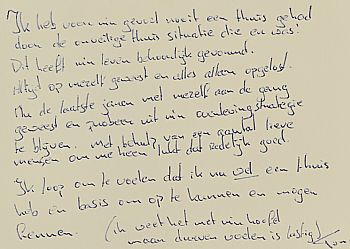 Ik heb voor mijn gevoel nooit een thuis gehad
door de onveilige thuis situatie die er was!
Dit heeft mijn leven behoorlijk gevormd.
Altijd op mezelf geweest en alles alleen opgelost.
Nu de laatste jaren met mezelf aan de gang
geweest en proberen uit mijn overlevingsstrategie
te blijven. Met behulp van een aantal lieve
mensen om me heen lukt dat redelijk goed.
Ik loop om te voelen dat ik nu wel een thuis
heb en basis om op te kunnen en mogen
leunen. (ik weet het met mijn hoofd,
maar durven voelen is lastig)